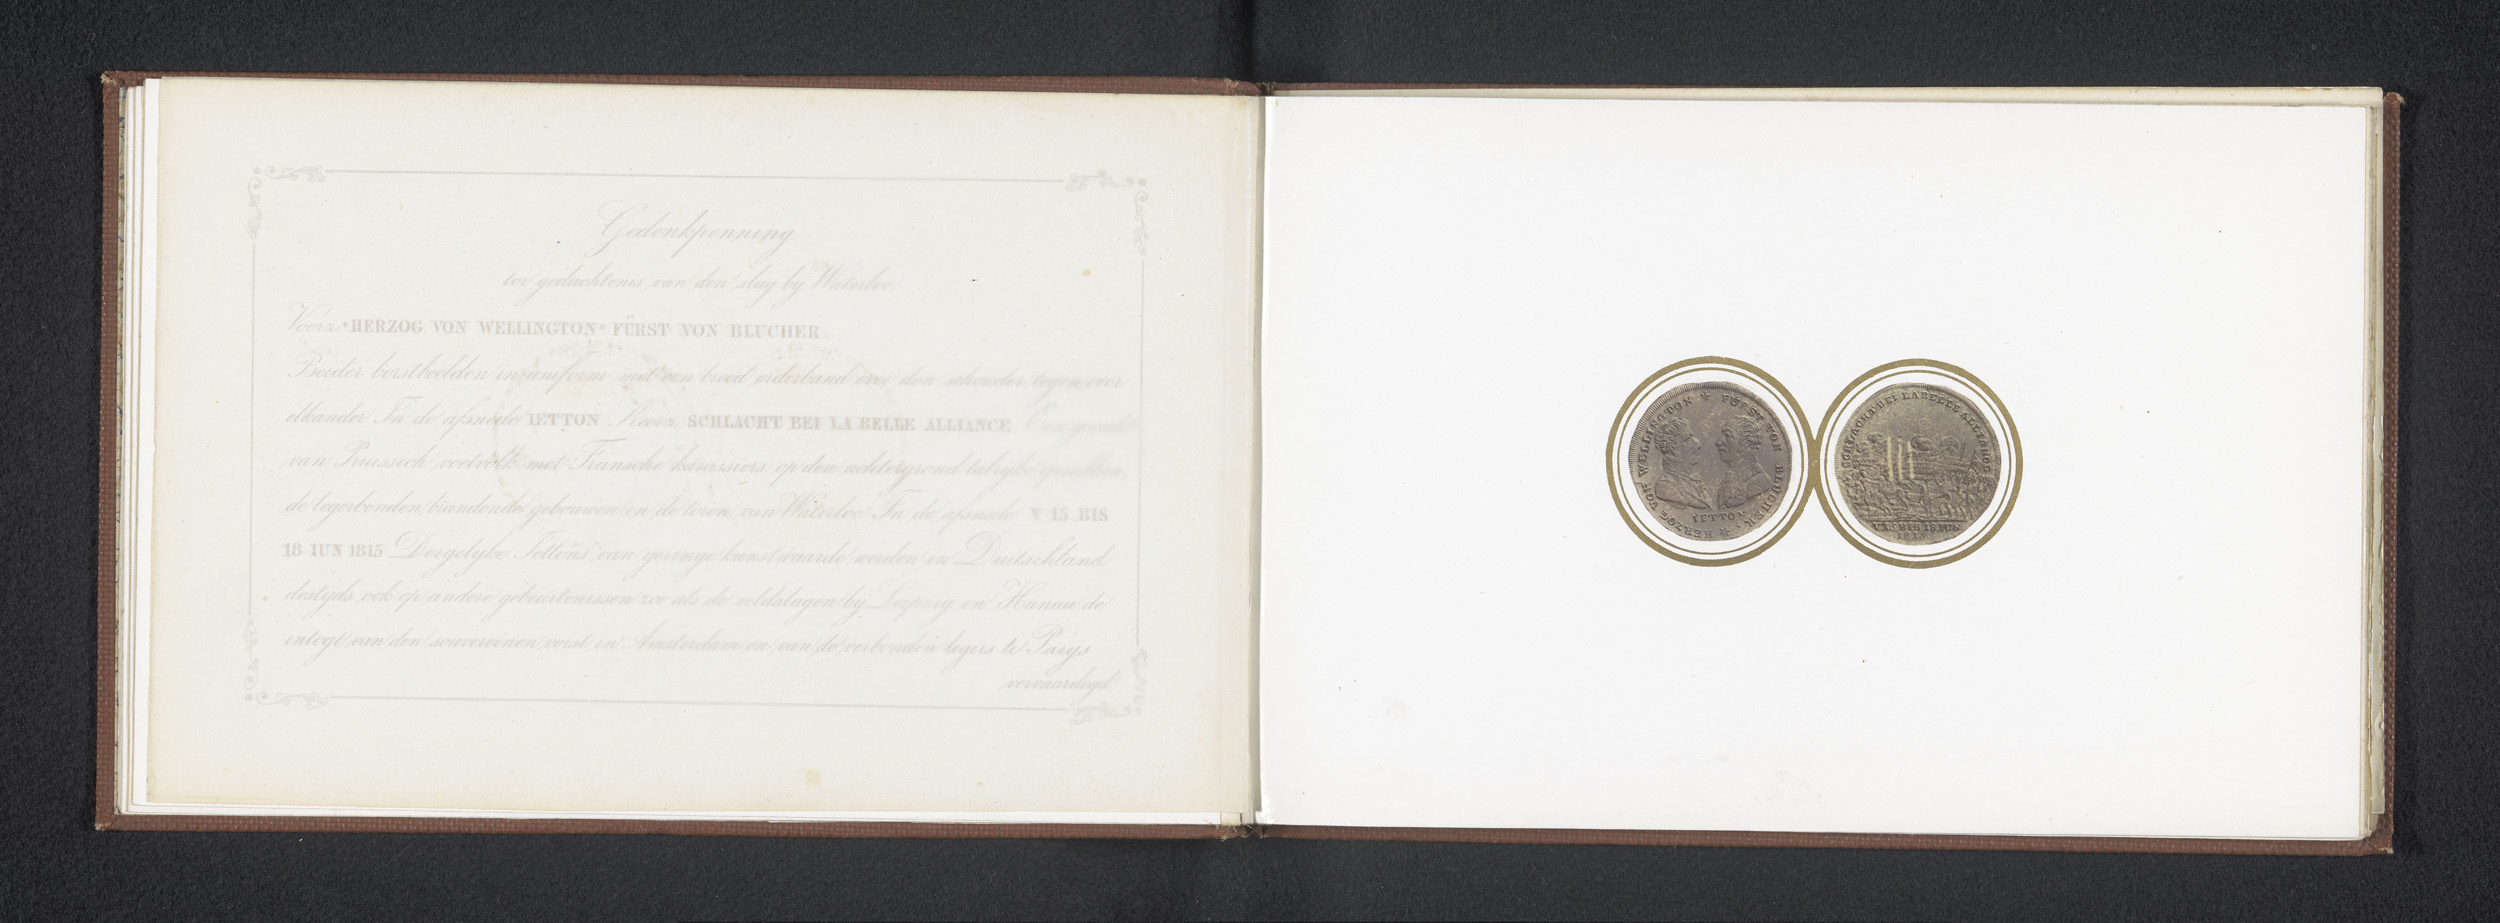 Gedenkpenning
ter gedachtenis van den slag by Waterloo
Voorz. * HERZOG VON WELLINGTON * FÜRST VON BLUCHER.
Beider borstbeelden in uniform met een breed orderband over den schouder tegen over
elkander In de afsnede IETTON Keerz. SCHLACHT BEI LA BELLE ALLIANCE
van Pruissich voetvolk met Fransche karassiers op den achtergrond talryke
de legerbenden, brandende gebouwen en de toren van Waterloo In de afsnede V 15 BIS
18 IUN 1815 Dergelyke Jettons van geringe kunstwaarde werden in Duitschland
destyds ook op andere gebeurtenissen zoo als de veldslagen by Leipzig en Hanau de
intogt van den souvereinen vorst in Amsterdam en van de verbonden legers te Parys
vervaardigd.
HERZOG VON WELLINGTON * FÜRST VON BLUCHER. *
IETTON
SCHLACHT BEI LA BELLE ALLIANCE
V 15 BIS 18 IUN
1815